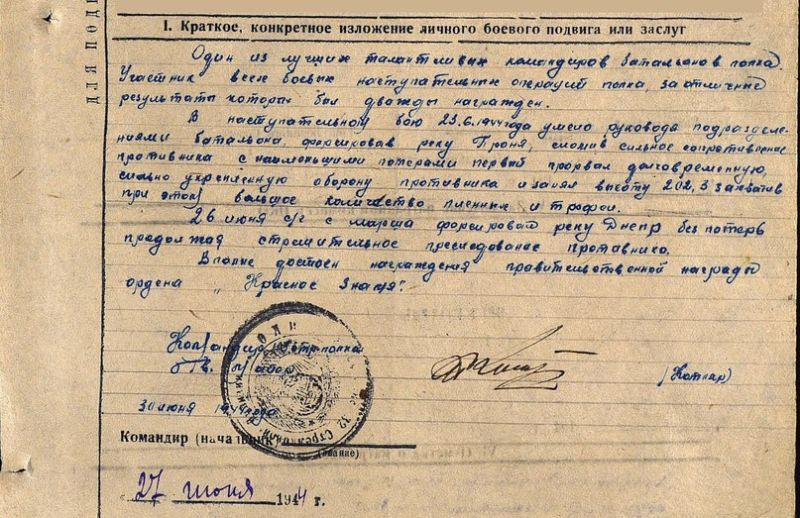 ДЛЯ ПОДШ
I. Краткое, конкретное изложение личного боевого подвига или заслуг
Один из лучших талантливых командиров батальонов полка.
Участник всех боевых наступательных операций полка, за отличные
результаты которых был дважды награжден.
В наступательном бою 23.6.1944 года умело руководя подразделе-
ниями батальона, форсировав реку Проня, сломив сильное сопротивление
противника с наименьшими потерями первый прорвал долговременную,
сильно укреплённую оборону противника и занял высоту 202,3 захватив
при этом большое количество пленных и трофеи.
26 июня с/г с марша форсировал реку Днепр без потерь
продолжая стремительное преследование противника.
Вполне достоин награждения правительственной награды
ордена „Красное Знамя".
Командир стр. полка
(Котляр)
30 июня 1944 года
Командир (начальник)
(звание)
27 июня 1944 г.